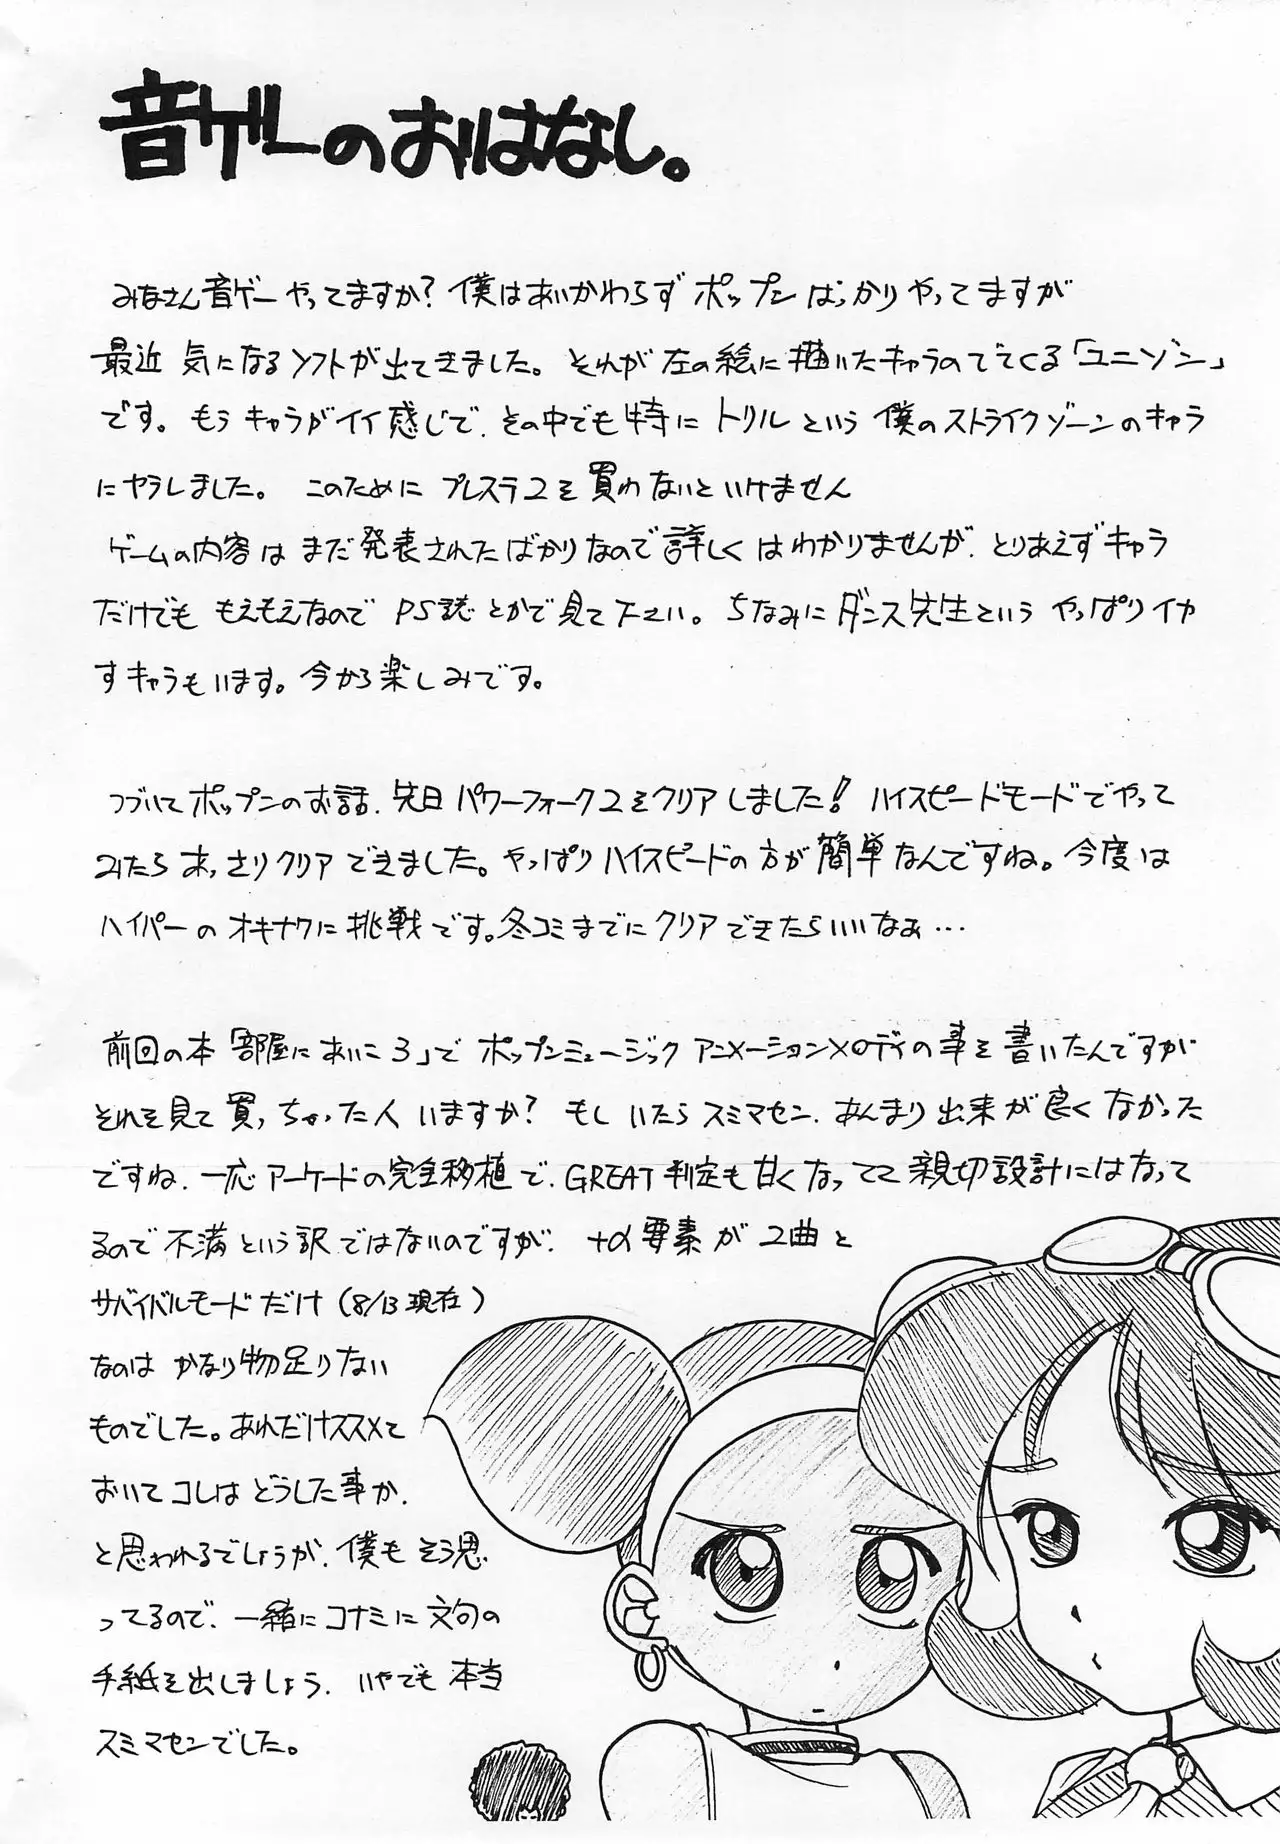 音ゲーのおはなし。
みなさん音ゲーやってますか?僕はあいかわらずポップンばっかりやってますが
最近 気になるソフトが出てきました。それが左の絵に描いたキャラのでてくる「ユニゾン」
です。もうキャラがイイ感じで、その中でも特にトリルという僕のストライクゾーンのキャラ
にヤラレました。このためにプレステ2を買わないといけません
ゲームの内容はまだ発表されたばかりなので詳しくはわかりませんが、とりあえずキャラ
だけでももえもえなのでPS誌とかで見て下さい。ちなみにダンス先生というやっぱりイカ
すキャラもいます。今から楽しみです。
つづいてポップンのお話、先日パワーフォーク2をクリアしました!ハイスピードモードでやって
みたらあっさりクリアできました。やっぱりハイスピードの方が簡単なんですね。今度は
ハイパーのオキナワに挑戦です。冬コミまでにクリアできたらいいなぁ…
前回の本「部屋にあいこ3」でポップンミュージックアニメーションメロディの事を書いたんですが
それを見て買っちゃった人いますか?もしいたらスミマセン、あんまり出来が良くなかった
ですね、一応アーケードの完全移植で、GREAT判定も甘くなってて親切設計にはなって
るので不満という訳ではないのですが、+α要素が2曲と
サバイバルモードだけ(8/13現在)
なのは かなり物足りない
ものでした。あれだけススメて
おいてコレはどうした事か、
と思われるでしょうが、僕もそう思
ってるので、一緒にコナミに文句の
手紙を出しましょう、いやでも本当
スミマセンでした。